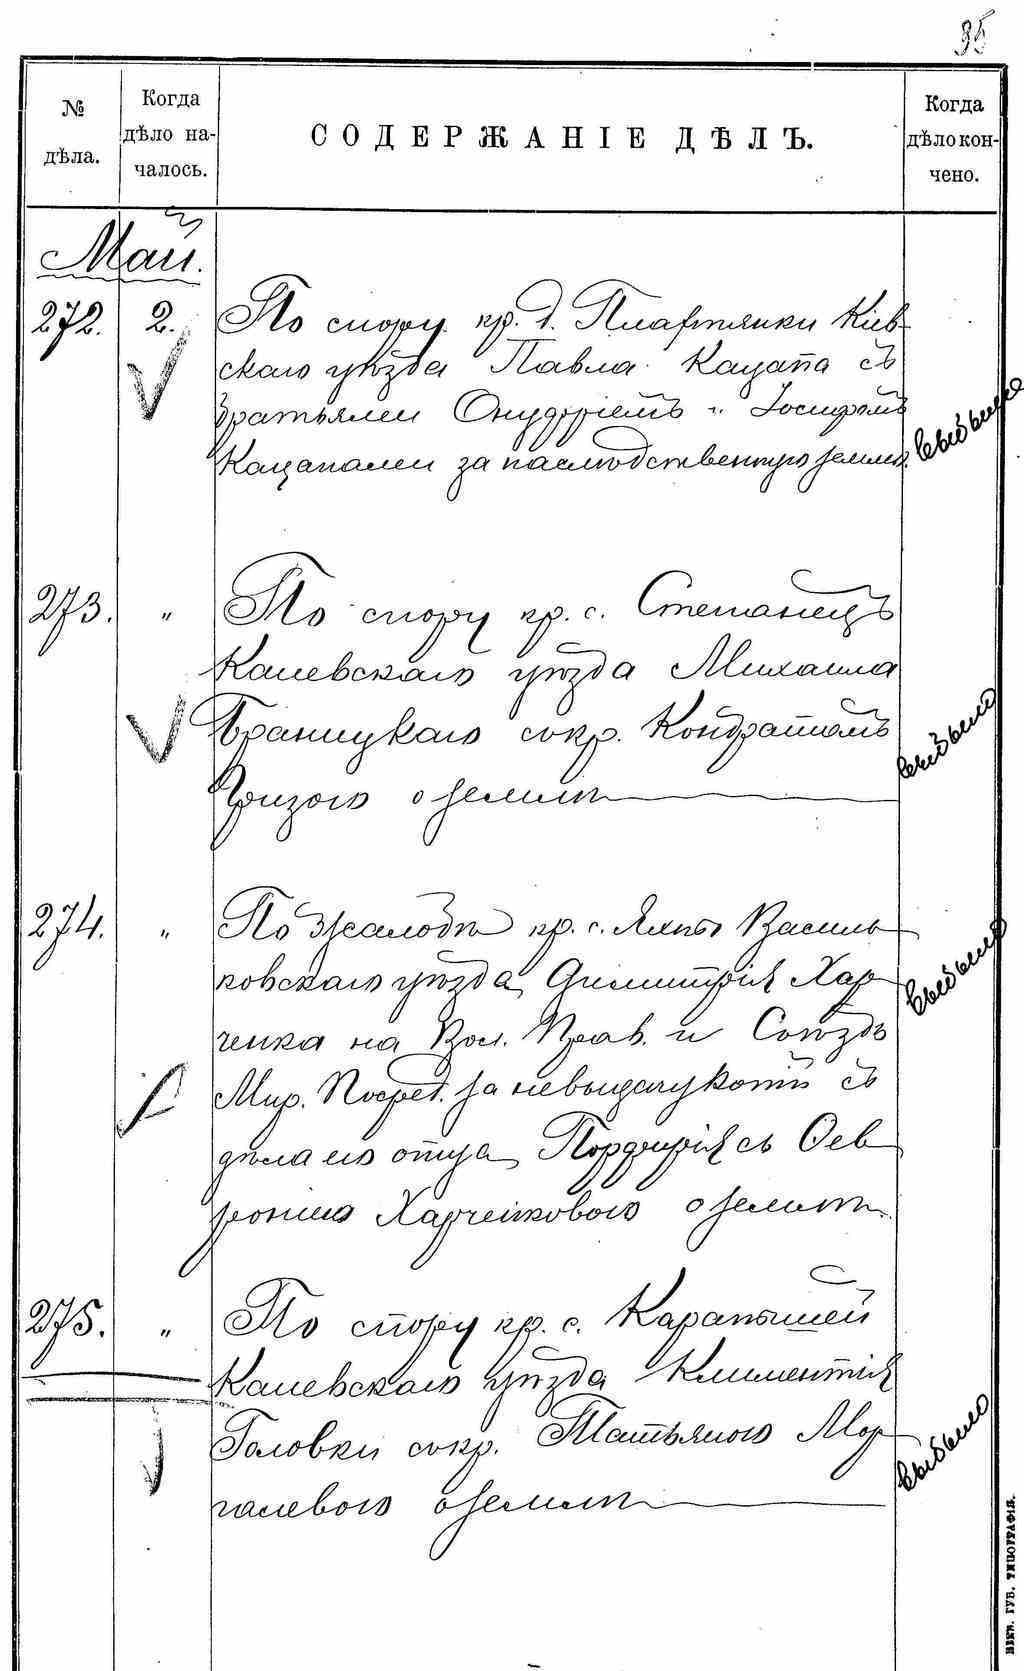 95
№ дѣла.
Когда дѣло началось.
СОДЕРЖАНІЕ ДѢЛЪ.
Когда дѣло кончено.
Май.
272. 2. По спору кр. д. Плахтянки Кіев-
скаго уѣзда Павла Кацапа съ
братьями Онуфріемъ и Іосифомъ
Кацапами за наслѣдственную землю. выбыло
273. " По спору кр. с. Степанецъ
Каневскаго уѣзда Михаила
Браницкаго съ кр. Кондратомъ
о землѣ выбыло
274. " По жалобѣ кр. с. Яхны Василь-
ковскаго уѣзда Димитрія Хар-
ченка на Вол. Прав. и Съѣздъ
Мир. Посред. за невыдачу копій съ
дѣла его отца Порфирія съ Фев-
роніею Харченковою о землѣ. выбыло
275. " По спору кр. с. Карапышей
Каневскаго уѣзда Климентія
Головки съ кр. Татьяною Мор-
галевою о землѣ выбыло
КІЕВ. ГУБ. ТИПОГРАФІЯ.